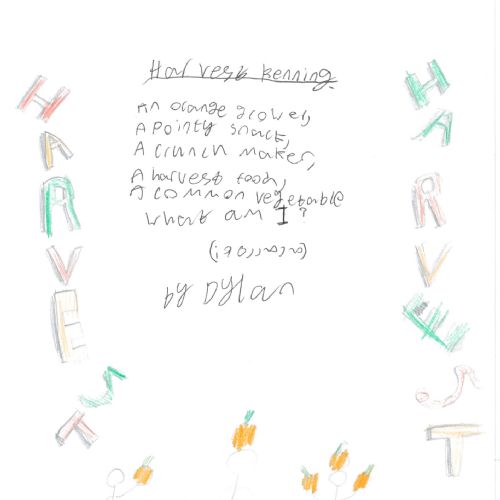 Harvest kenning
An orange grower,
A pointy snack,
A crunch maker,
A harvest food,
A common vegetable
What am I?
by Dylan
HARVEST
HARVEST